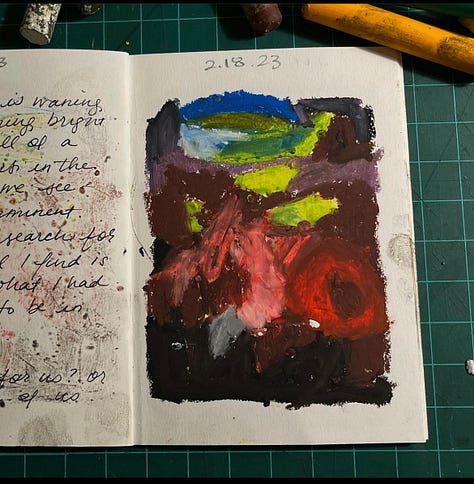 3
is waning
ing bright
ll of a
in the
me see
eminent
search for
I find is
what I had
to be in
for us? or
of us
2.18.23